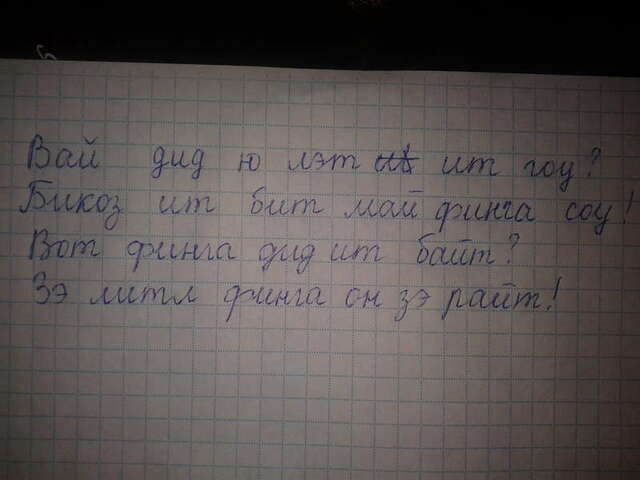 Вай дид ю лэт ит гоу?
Бикоз ит бит май финга соу!
Вот финга дид ит байт?
Зэ литл финга он зэ райт!